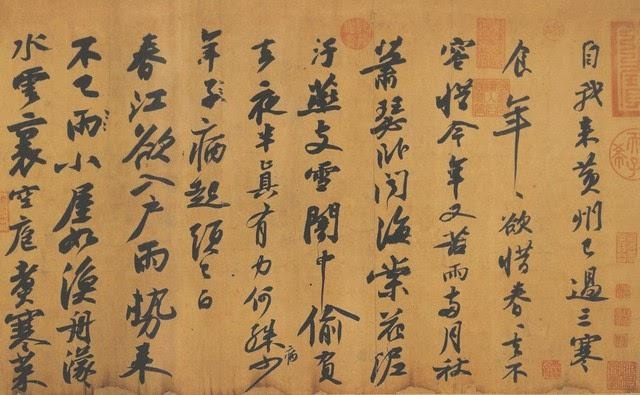 自我來黃州已過三寒
食年、欲惜春、去不
容惜今年又苦雨兩月秋
蕭瑟卧聞海棠花泥
汙燕支雪闇中偷負
去夜半真有力何殊病少
年子病起頭已白
春江欲入戶雨勢來
不已雨小屋如漁舟濛
水雲裏空庖煮寒菜